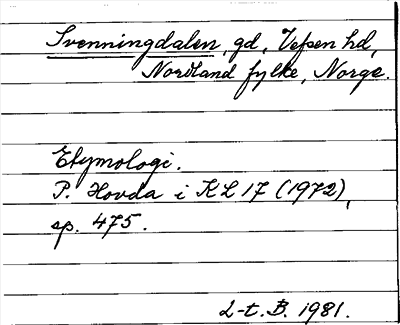 Svenningdalen, gd, Vefsen hd,
Nordland fylke, Norge.
Etymologi.
P. Hovda i KL 17 (1972),
sp. 475.
L-t. B. 1981.